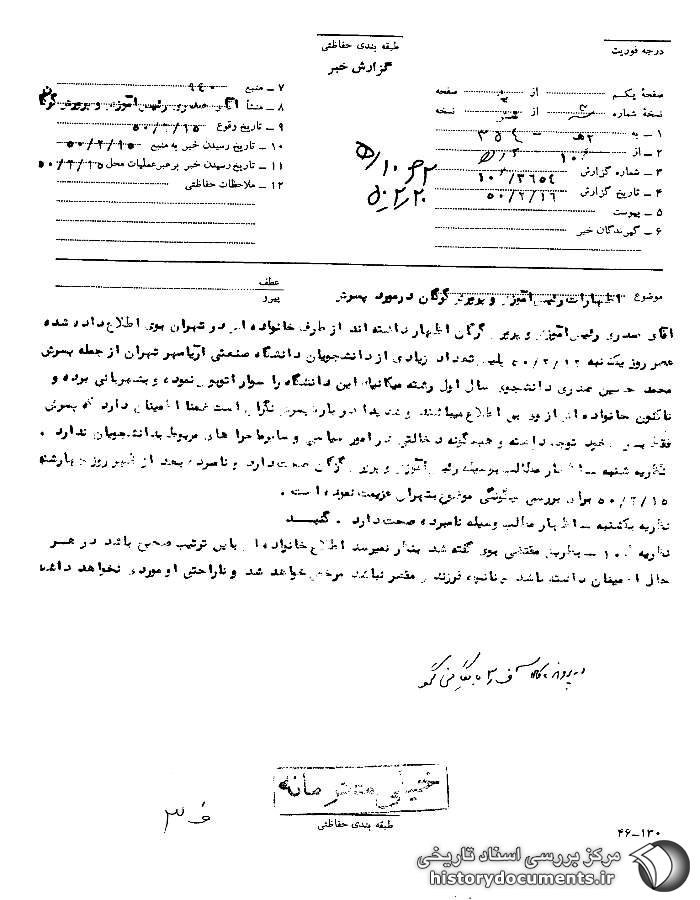 درجه فوریت
طبقه بندی حفاظتی
گزارش خبر
صفحهٔ یکم از صفحه
نسخهٔ شماره از نسخه
۱ ـ به
۲ ـ از
۳ ـ شماره گزارش ۳۶۵۴/۱۰
۴ ـ تاریخ گزارش ۵۰/۲/۱۶
۵ ـ پیوست
۶ ـ گیرندگان خبر
۷ ـ منبع ۹۴۰
۸ ـ منشأ آقای صدری رئیس آموزش و پرورش گرگان
۹ ـ تاریخ وقوع ۵۰/۲/۱۵
۱۰ ـ تاریخ رسیدن خبر به منبع ۵۰/۲/۱۵
۱۱ ـ تاریخ رسیدن خبر به رهبر عملیات محل ۵۰/۲/۱۵
۱۲ ـ ملاحظات حفاظتی
۵۰/۲/۲۰
موضوع اظهارات رئیس آموزش و پرورش گرگان در مورد پسرش
عطف
پیرو
آقای صدری رئیس آموزش و پرورش گرگان اظهار داشته اند از طرف خانواده اش در تهران بوی اطلاع داده شده
عصر روز یکشنبه ۵۰/۲/۱۲ پلیس تعداد زیادی از دانشجویان دانشگاه صنعتی آریامهر تهران از جمله پسرش
محمد حسین صدری دانشجوی سال اول رشته مکانیک این دانشگاه را سوار اتوبوس نموده و بشهربانی برده و
تاکنون خانواده اش از وی بی اطلاع میباشند و شدیدا در باره پسرش نگران است ضمنا اطمینان دارد که پسرش
فقط بدرس خود توجه داشته و هیچگونه دخالتی در امور سیاسی و سایر ماجراهای مربوط بدانشجویان ندارد .
نظریه شنبه ـ اظهار مطالب بوسیله رئیس آموزش و پرورش گرگان صحت دارد و نامبرده بعد از ظهر روز چهارشنبه
۵۰/۲/۱۵ برای بررسی چگونگی موضوع بتهران عزیمت نموده است .
نظریه یکشنبه ـ اظهار مطالب وسیله نامبرده صحت دارد . گنبد
نظریه ۱۰ ـ بطریق مقتضی بوی گفته شد بنظر نمیرسد اطلاع خانواده اش باین ترتیب صحیح باشد در هر
حال اطمینان داشته باشد چنانچه فرزندش مقصر نباشد مرخص خواهد شد و ناراحتی او موردی نخواهد داشت
خیلی محرمانه
طبقه بندی حفاظتی
۴۶-۱۳۰
مرکز بررسی اسناد تاریخی
historydocuments.ir